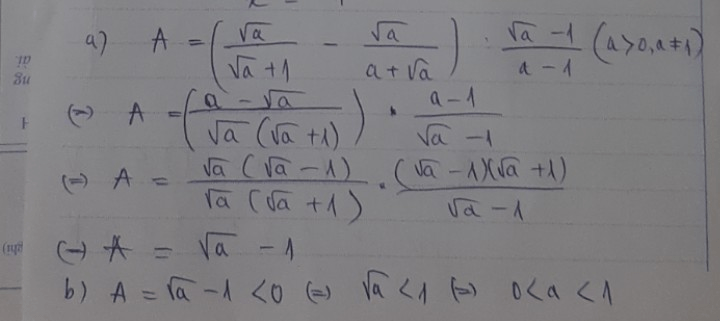 a) A = (√a/(√a + 1) - √a/(a + √a)) : (√a - 1)/(a - 1) (a > 0, a ≠ 1)
(=) A = ((a - √a)/(√a (√a + 1))) . (a - 1)/(√a - 1)
(=) A = (√a (√a - 1))/(√a (√a + 1)) . ((√a - 1)(√a + 1))/(√a - 1)
(=) A = √a - 1
b) A = √a - 1 < 0 (=) √a < 1 (=) 0 < a < 1